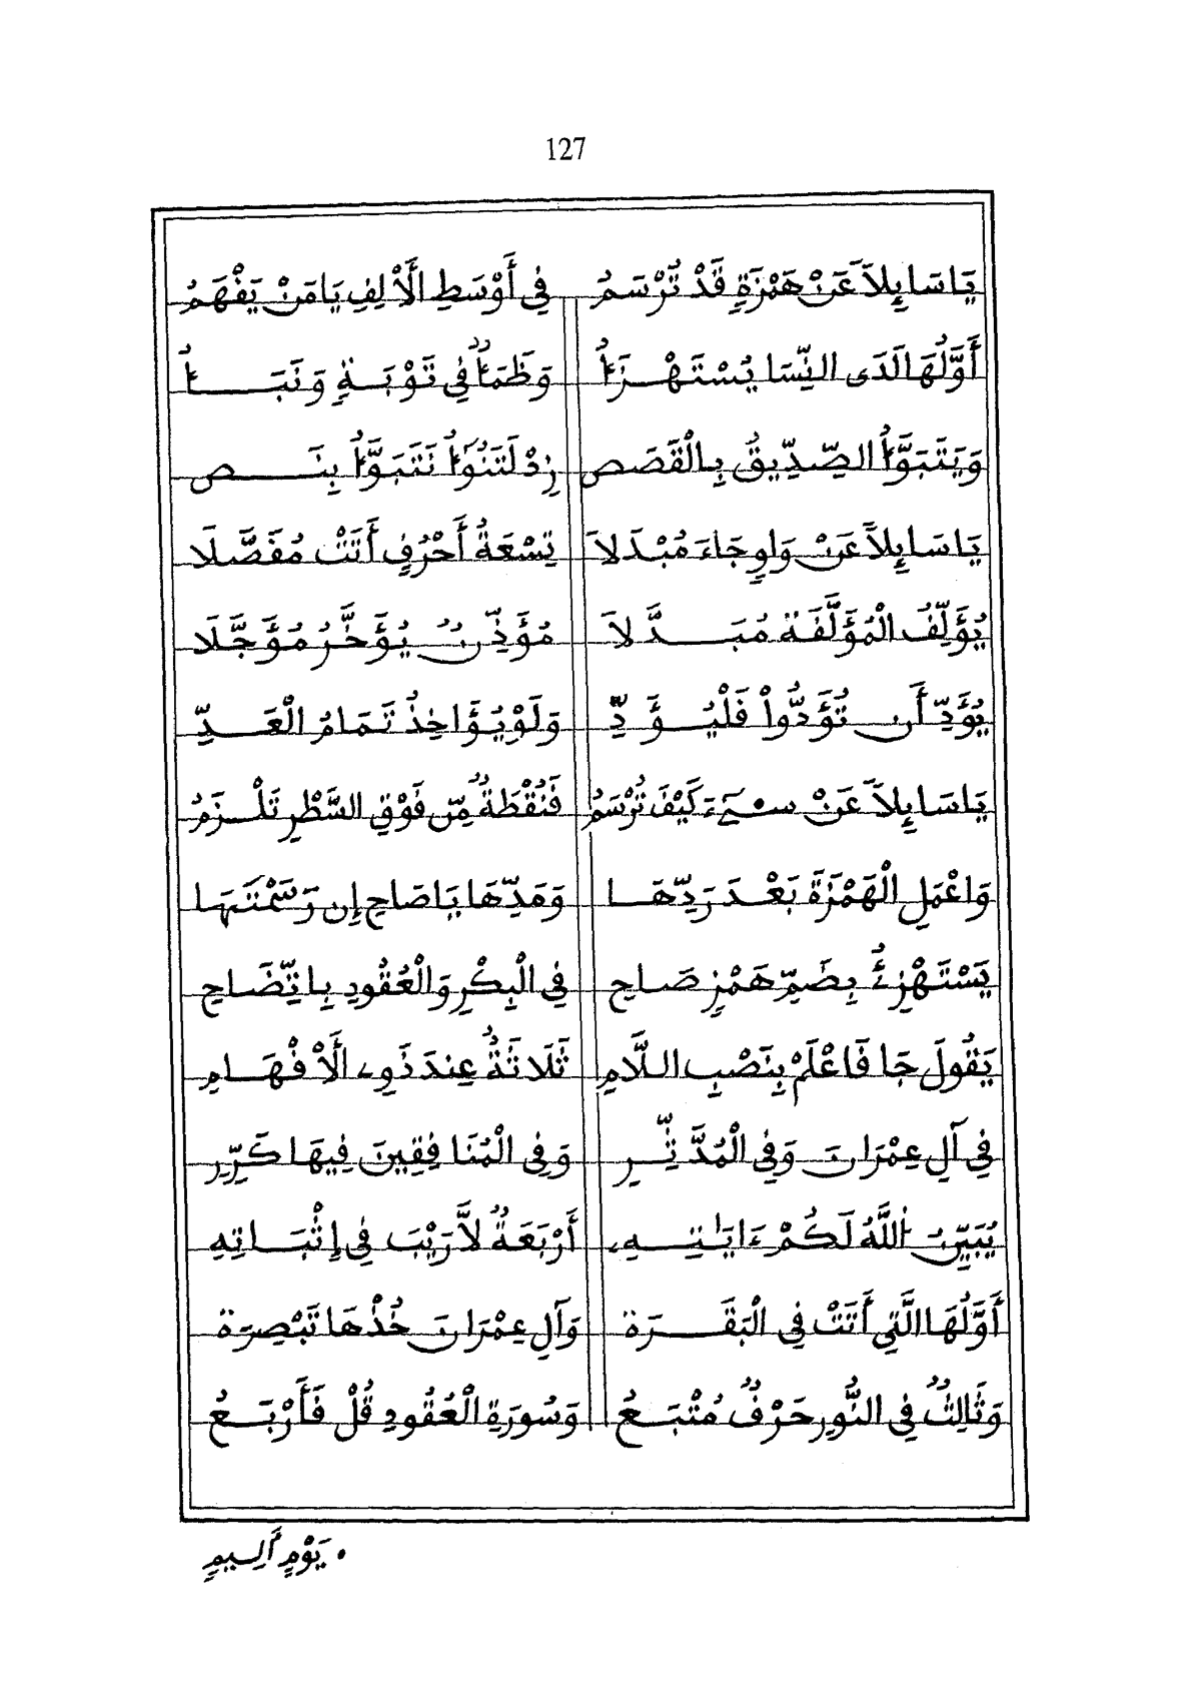 127
يَا سَايِلاً عَنْ هَمْزَةٍ قَدْ تُرْسَمُ فِي أَوْسَطِ الَألِفِ يَا مَنْ يَفْهَمُ
أَوَّلُهَا لَدَى النِّسَا يُسْتَهْزَأُ وَظَمَأٌ فِي تَوْبَةٍ وَنَبَأُ
وَيَتَبَوَّأُ الصِّدِّيقُ بِالْقَصَصِ زِدْ لَتَنُوأُ نَتَبَوَّأُ بِنَصِ
يَا سَايِلاً عَنْ وَاوٍ جَاءَ مُبْدَلاَ تِسْعَةُ أَحْرُفٍ أَتَتْ مُفَصَّلَا
يُؤَلِّفُ الْمُؤَلَّفَةِ مُبَدَّلاَ مُؤَذِّنٌ يُؤَخَّرُ مُؤَجَّلَا
يُؤَدِّ أَن تُؤَدُّواْ فَلْيُؤَدِّ وَلَوْ يُؤَاخِذُ تَمَامُ الْعَدِّ
يَا سَايِلاً عَنْ سےءَ كَيْفَ تُرْسَمُ فَنُقْطَةٌ مِّن فَوْقِ السَّطْرِ تَلْزَمُ
وَاعْمَلِ الْهَمْزَةَ بَعْدَ رَدِّهَا وَمَدِّهَا يَا صَاحِ إِن رَسَمْتَهَا
يَسْتَهْزِئُ بِضَمِّ هَمْزٍ صَاحِ فِي الْبِكْرِ وَالْعُقُودِ بِاتِّضَاحِ
يَقُولَ جَا فَاعْلَمْ بِنَصْبِ اللَّامِ ثَلَاثَةٌ عِندَ ذَوِے الَأفْهَامِ
فِي آلِ عِمْرَانَ وَفِي الْمُدَّثِّرِ وَفِي الْمُنَافِقِينَ فِيهَا كَرِّرِ
يُبَيِّنُ اللَّهُ لَكُمْ ءَايَٰتِهِے أَرْبَعَةٌ لاَّ رَيْبَ فِي إِثْبَاتِهِ
أَوَّلُهَا الَّتِي أَتَتْ فِي الْبَقَرَة وَآلِ عِمْرَانَ خُذْهَا تَبْصِرَة
وَثَالِثٌ فِي النُّورِ حَرْفٌ مُتْبَعُ وَسُورَةِ الْعُقُودِ قُلْ فَأَرْبَعُ
• يَوْمٍ أَلِيمٍ